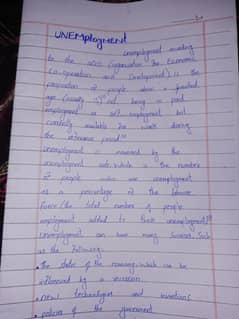 UNEMPLOYMENT
unemployment according
to the OECD (organisation the Economic
Co-operation and Development) is the
proportion of people above a specified
age (usually 15) not being in paid
employment or self employment but
currently available for work during
the reference period
Unemployment is measured by the
unemployment rate, which is the number
of people who are unemployed
as a percentage of the labour
force (the total number of people
employment added to those unemployment)
Unemployment can have many sources, Such
as the following:
• the state of the economy, which can be
influenced by a recession
• new technologies and inventions
• policies of the government